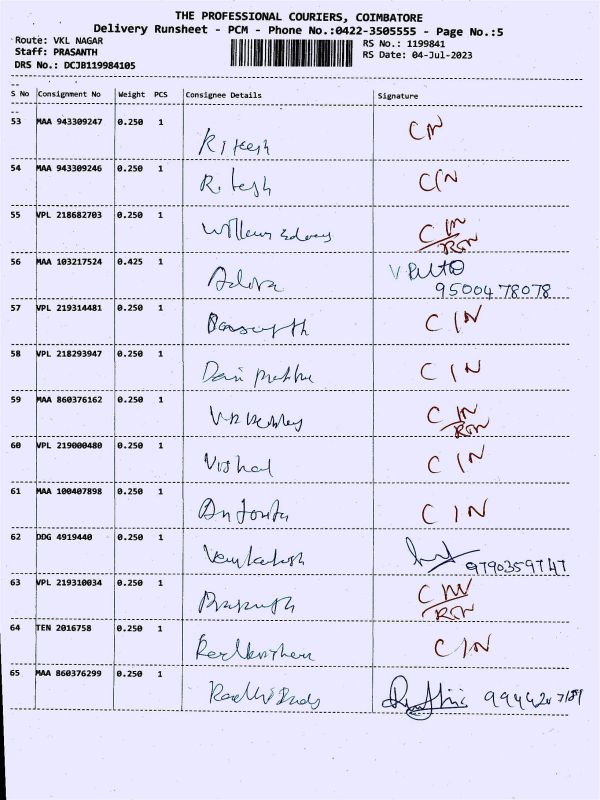 THE PROFESSIONAL COURIERS, COIMBATORE
Delivery Runsheet - PCM - Phone No.:0422-3505555 - Page No.:5
Route: VKL NAGAR RS No.: 1199841
Staff: PRASANTH RS Date: 04-Jul-2023
DRS No.: DCJB119984105
--
S No Consignment No Weight PCS Consignee Details Signature
--
53 MAA 943309247 0.250 1 CIN
54 MAA 943309246 0.250 1 CIN
55 VPL 218682703 0.250 1 CIN
RSN
56 MAA 103217524 0.425 1
9500478078
57 VPL 219314481 0.250 1 CIN
58 VPL 218293947 0.250 1 CIN
59 MAA 860376162 0.250 1 CIN
RSN
60 VPL 219000480 0.250 1 Vishal CIN
61 MAA 100407898 0.250 1 CIN
62 DDG 4919440 0.250 1 Venkatesh
9790359747
63 VPL 219310034 0.250 1 CIN
RSN
64 TEN 2016758 0.250 1 CIN
65 MAA 860376299 0.250 1